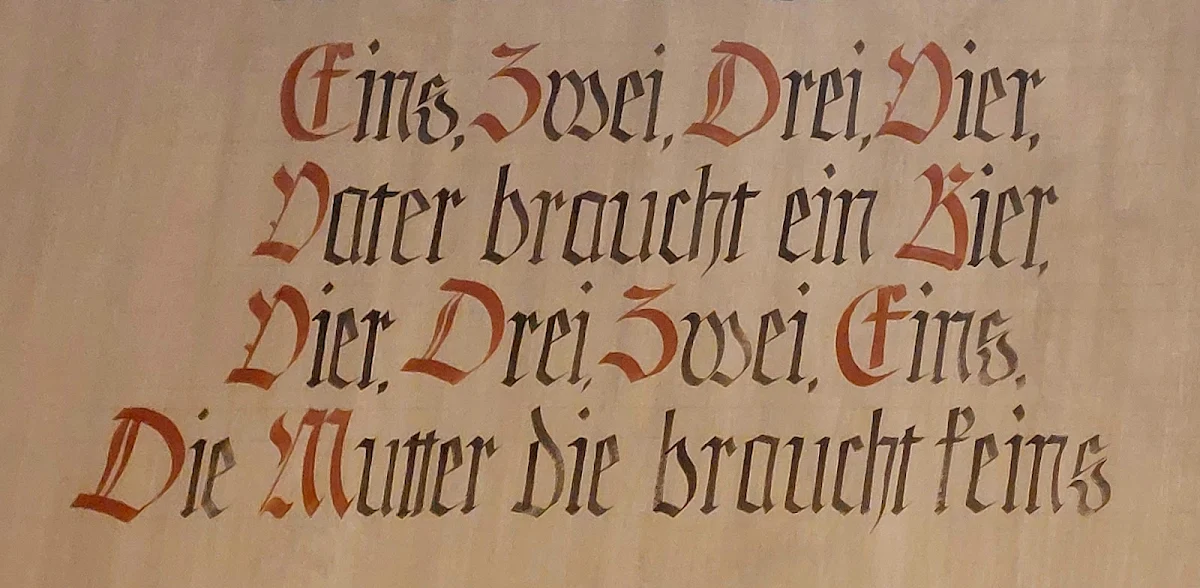 Eins, Zwei, Drei, Vier,
Vater braucht ein Bier,
Vier, Drei, Zwei, Eins,
Die Mutter die braucht keins